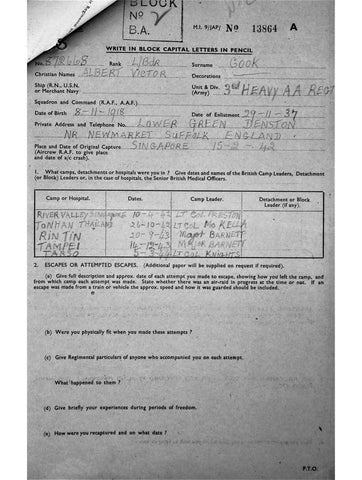 BLOCK
No 2
B.A.
M.I. 9/JAP/ No 13864 A
WRITE IN BLOCK CAPITAL LETTERS IN PENCIL
No. Rank L/Bdr Surname COOK
Christian Names ALBERT VICTOR Decorations
Ship (R.N., U.S.N. or Merchant Navy Unit & Div. (Army) 3rd HEAVY AA REGT
Squadron and Command (R.A.F., A.A.F.)
Date of Birth 8-11-1918 Date of Enlistment 29-11-37
Private Address and Telephone No. LOWER GREEN DENSTON
NR. NEWMARKET SUFFOLK ENGLAND.
Place and Date of Original Capture SINGAPORE 15-2-42
(Aircrew R.A.F. to give place
and date of a/c crash).
1. What camps, detachments or hospitals were you in ? Give dates and names of the British Camp Leaders, Detachment
(or Block) Leaders or, in the case of hospitals, the Senior British Medical Officers.
Camp or Hospital. Dates. Camp Leader. Detachment or Block Leader (if any).
RIVER VALLEY SINGAPORE 10-4-42 LT COL PRESTON
TONHAN THAILAND 26-10-42 LT COL
RINTIN 20-9-43 Major BARNETT
TAMPEI 14-12-43 MAJOR BARNETT
LT COL KNIGHTS
2. ESCAPES OR ATTEMPTED ESCAPES. (Additional paper will be supplied on request if required).
(a) Give full description and approx. date of each attempt you made to escape, showing how you left the camp, and
from which camp each attempt was made. State whether there was an air-raid in progress at the time or not. If an
escape was made from a train or vehicle the approx. speed and how it was guarded should be included.
(b) Were you physically fit when you made these attempts ?
(c) Give Regimental particulars of anyone who accompanied you on each attempt.
What happened to them ?
(d) Give briefly your experiences during periods of freedom.
(e) How were you recaptured and on what date ?
P.T.O.